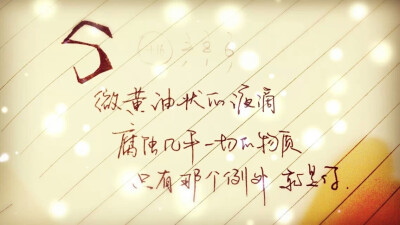 S
微黄油状的液滴
腐蚀几乎一切的物质
只有那个例外 就是你.